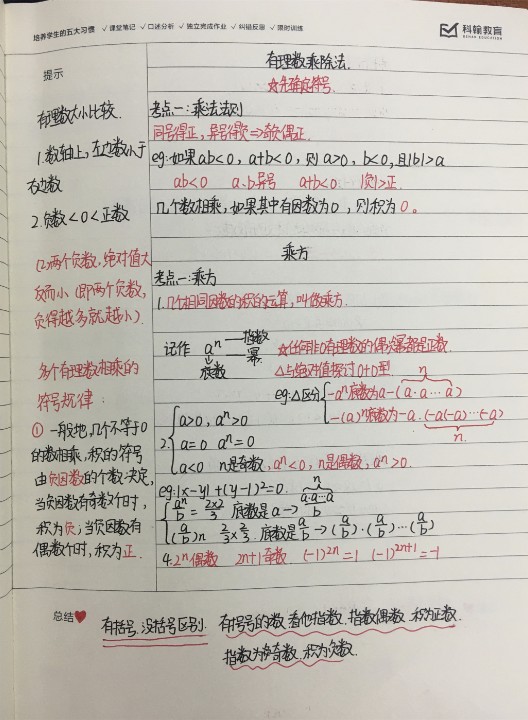 培养学生的五大习惯 ✓课堂笔记 ✓口述分析 ✓独立完成作业 ✓纠错反思 ✓限时训练
科翰教育
KEHAN EDUCATION
提示
有理数大小比较.
1.数轴上,左边数小于
右边数
2.负数<0<正数
(2)两个负数,绝对值大
反而小(即两个负数,
负得越多就越小).
多个有理数相乘的
符号规律:
① 一般地,几个不等于0
的数相乘,积的符号
由负因数的个数决定,
当负因数有奇数个时,
积为负;当负因数有
偶数个时,积为正.
有理数乘除法.
☆先确定符号.
考点一:乘法法则
同号得正,异号得负⇒奇负偶正.
eg:如果ab<0,a+b<0,则a>0,b<0,且|b|>a
ab<0 a.b异号 a+b<0 |负|>正.
几个数相乘,如果其中有因数为0,则积为0。
乘方
考点一:乘方
1.几个相同因数的积的运算,叫做乘方.
记作 aⁿ 指数
幂
底数
☆任何非0有理数的偶次幂都是正数.
△与绝对值探讨0+0型.
n
eg:△区分 -aⁿ底数为a→-(a·a…a)
-(a)ⁿ底数为-a.(-a)(-a)…(-a)
n.
2. a>0, aⁿ>0
a=0 aⁿ=0
a<0 n是奇数,aⁿ<0,n是偶数,aⁿ>0.
eg:|x-y|+(y-1)²=0.
n
aⁿ/b = 2×2/3 底数是a→ a·a…a/b
(a/b)n 2/3×2/3.底数是a/b→(a/b)·(a/b)…(a/b)
4.2n偶数 2n+1奇数 (-1)²ⁿ=1 (-1)²ⁿ⁺¹=-1
总结♥
有括号、没括号区别. 有括号的数看他指数.指数偶数.积为正数.
指数为奇数.积为负数.